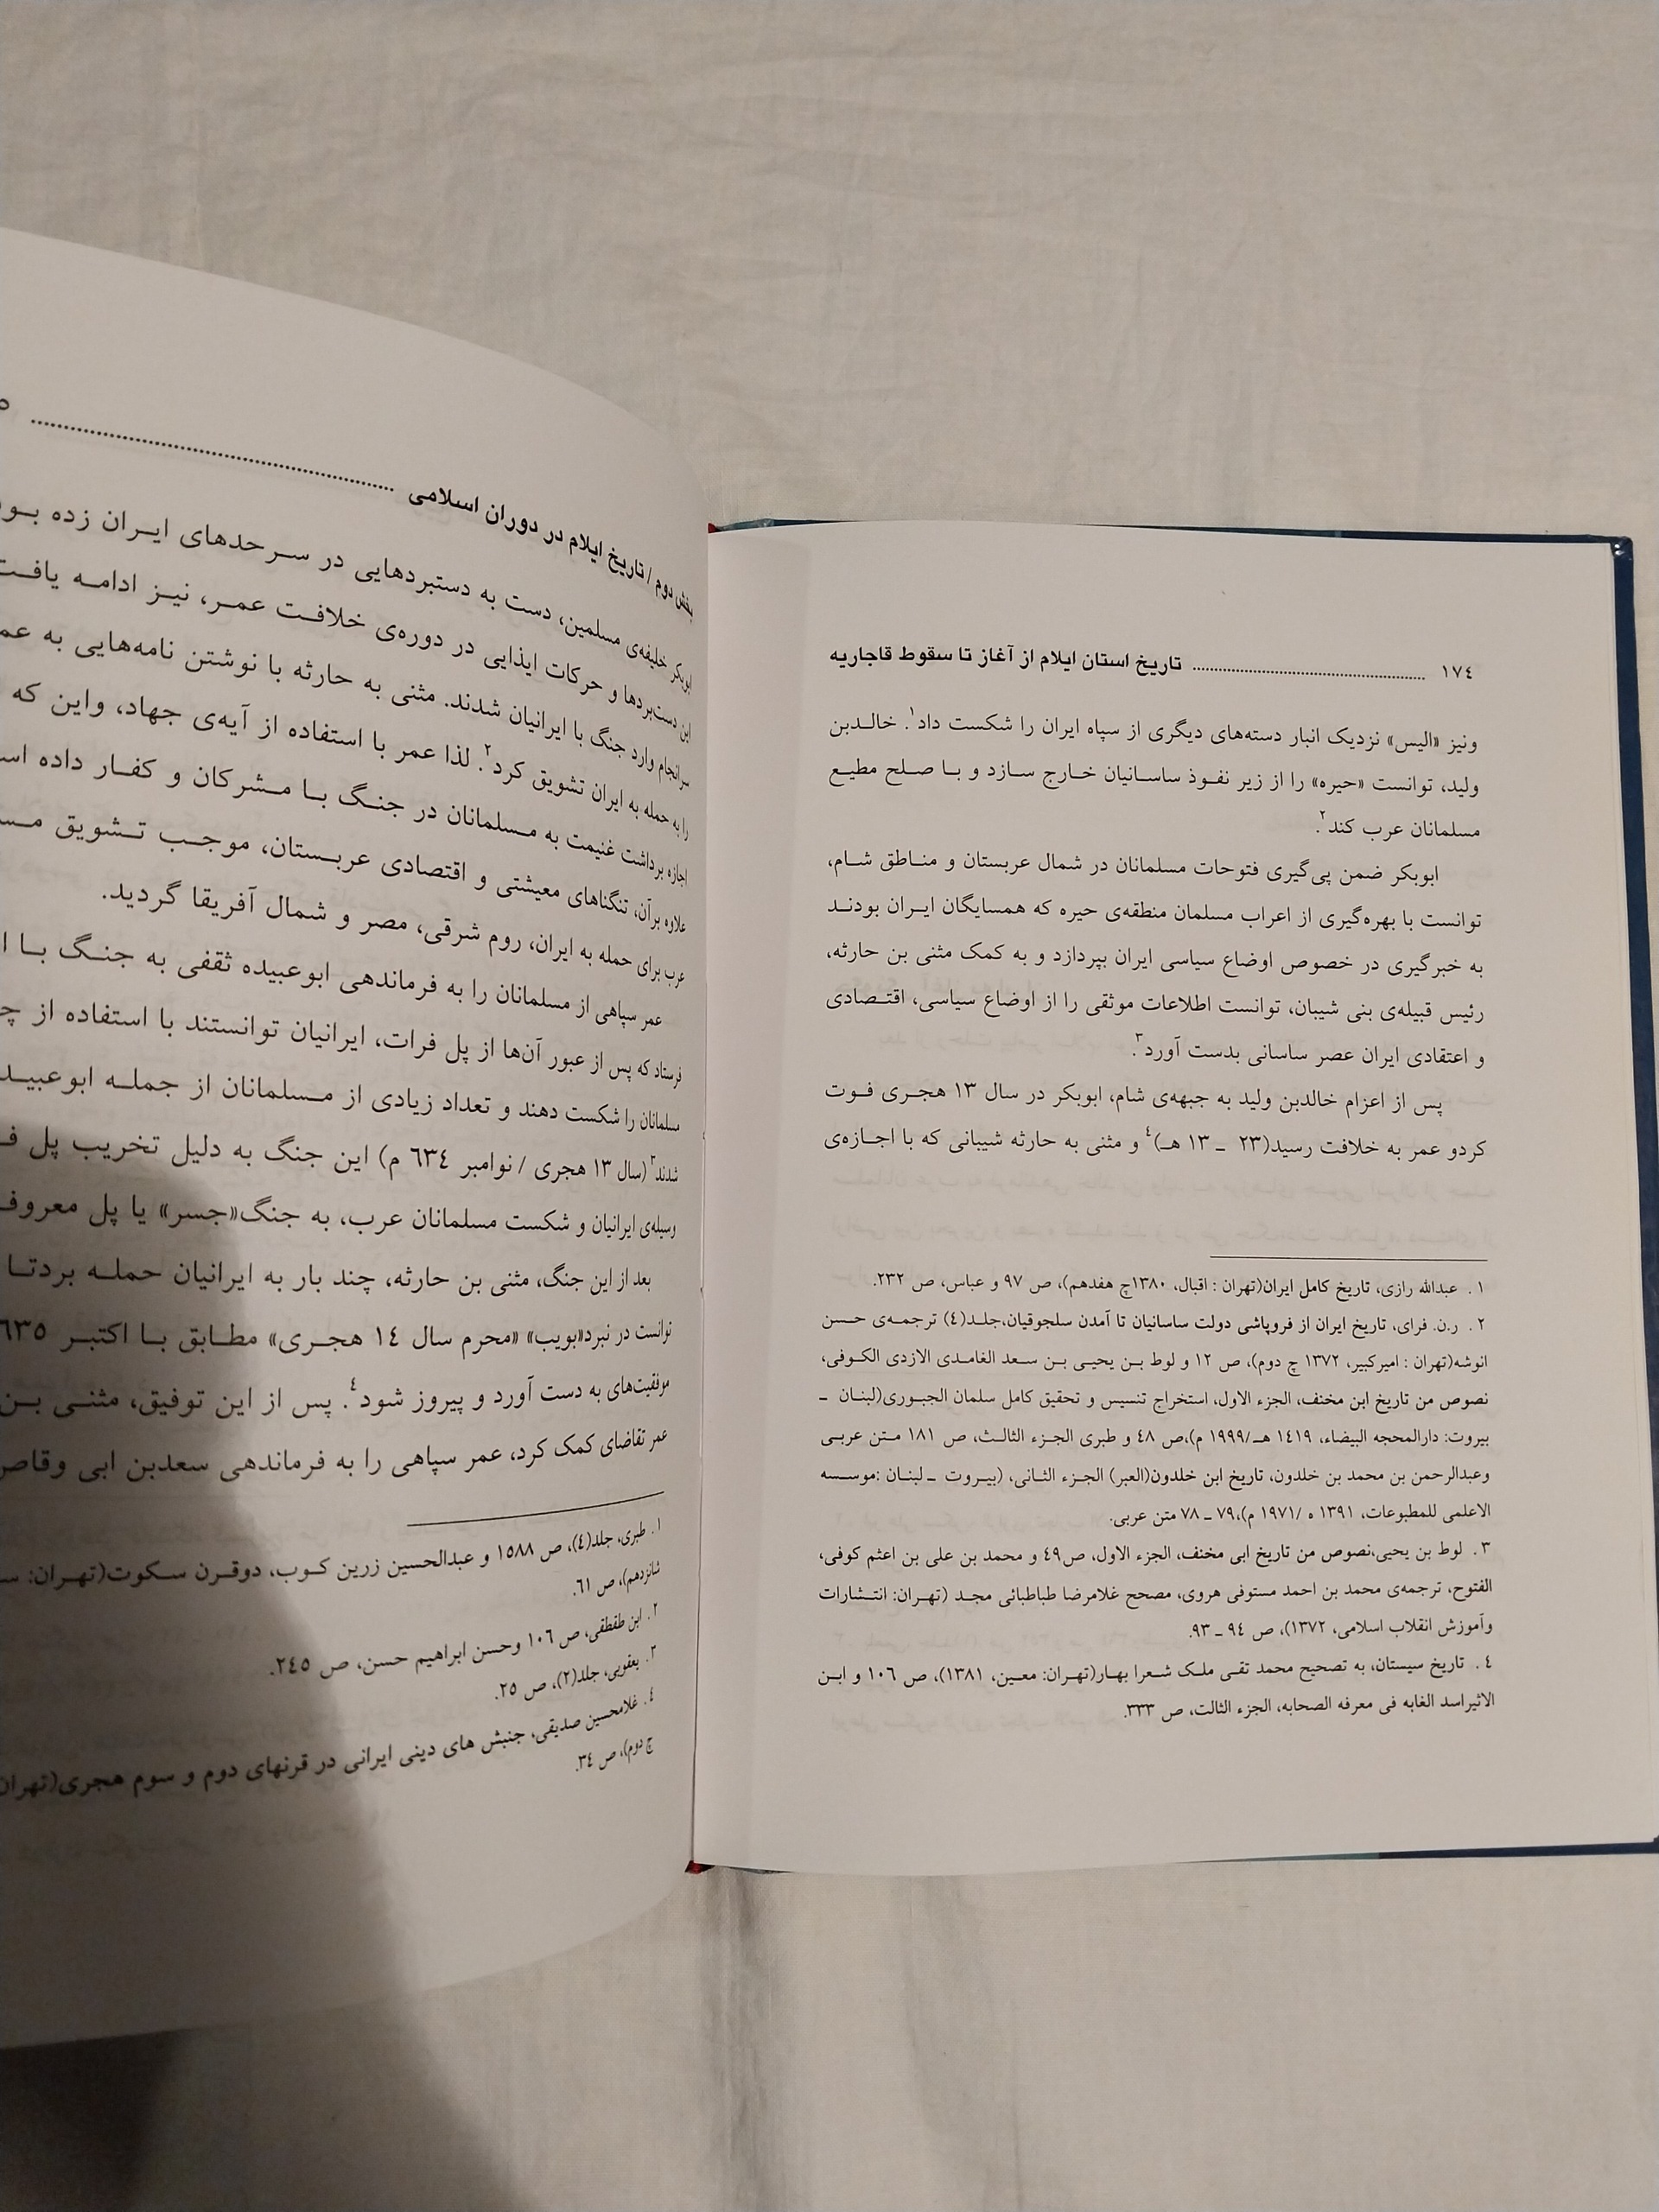 ١٧٤ ........................ تاریخ استان ایلام از آغاز تا سقوط قاجاریه
ونیز «الیس» نزدیک انبار دسته‌های دیگری از سپاه ایران را شکست داد١. خالدبن
ولید، توانست «حیره» را از زیر نفوذ ساسانیان خارج سازد و با صلح مطیع
مسلمانان عرب کند٢.
ابوبکر ضمن پی‌گیری فتوحات مسلمانان در شمال عربستان و مناطق شام،
توانست با بهره‌گیری از اعراب مسلمان منطقه‌ی حیره که همسایگان ایران بودند
به خبرگیری در خصوص اوضاع سیاسی ایران بپردازد و به کمک مثنی بن حارثه،
رئیس قبیله‌ی بنی شیبان، توانست اطلاعات موثقی را از اوضاع سیاسی، اقتصادی
و اعتقادی ایران عصر ساسانی بدست آورد٣.
پس از اعزام خالدبن ولید به جبهه‌ی شام، ابوبکر در سال ١٣ هجری فوت
کردو عمر به خلافت رسید(٢٣ ـ ١٣ هـ)٤ و مثنی به حارثه شیبانی که با اجازه‌ی
١. عبدالله رازی، تاریخ کامل ایران(تهران : اقبال، ١٣٨٠چ هفدهم)، ص ٩٧ و عباس، ص ٢٣٢.
٢. ر.ن. فرای، تاریخ ایران از فروپاشی دولت ساسانیان تا آمدن سلجوقیان،جلد(٤) ترجمه‌ی حسن
انوشه(تهران : امیرکبیر، ١٣٧٢ چ دوم)، ص ١٢ و لوط بن یحیی بن سعد الغامدی الازدی الکوفی،
نصوص من تاریخ ابن مخنف، الجزء الاول، استخراج تنسیس و تحقیق کامل سلمان الجبوری(لبنان ـ
بیروت: دارالمحجه البیضاء، ١٤١٩ هـ/١٩٩٩ م)،ص ٤٨ و طبری الجزء الثالث، ص ١٨١ متن عربی
وعبدالرحمن بن محمد بن خلدون، تاریخ ابن خلدون(العبر) الجزء الثانی، (بیروت ـ لبنان :موسسه
الاعلمی للمطبوعات، ١٣٩١ ه /١٩٧١ م)،٧٩ ـ ٧٨ متن عربی.
٣. لوط بن یحیی،نصوص من تاریخ ابی مخنف، الجزء الاول، ص٤٩ و محمد بن علی بن اعثم کوفی،
الفتوح، ترجمه‌ی محمد بن احمد مستوفی هروی، مصحح غلامرضا طباطبائی مجد (تهران: انتشارات
وآموزش انقلاب اسلامی، ١٣٧٢)، ص ٩٤ ـ ٩٣.
٤. تاریخ سیستان، به تصحیح محمد تقی ملک شعرا بهار(تهران: معین، ١٣٨١)، ص ١٠٦ و ابن
الاثیراسد الغابه فی معرفه الصحابه، الجزء الثالث، ص ٣٣٣.
بخش دوم / تاریخ ایلام در دوران اسلامی ........................
ابوبکر خلیفه‌ی مسلمین، دست به دستبردهایی در سرحدهای ایران زده
این دست‌بردها و حرکات ایذایی در دوره‌ی خلافت عمر، نیز ادامه
سرانجام وارد جنگ با ایرانیان شدند. مثنی به حارثه با نوشتن نامه‌هایی به
را به حمله به ایران تشویق کرد٢. لذا عمر با استفاده از آیه‌ی جهاد، واین که
اجازه برداشت غنیمت به مسلمانان در جنگ با مشرکان و کفار داده
علاوه برآن، تنگناهای معیشتی و اقتصادی عربستان، موجب تشویق
عرب برای حمله به ایران، روم شرقی، مصر و شمال آفریقا گردید.
عمر سپاهی از مسلمانان را به فرماندهی ابوعبیده ثقفی به جنگ با
فرستاد که پس از عبور آن‌ها از پل فرات، ایرانیان توانستند با استفاده از
مسلمانان را شکست دهند و تعداد زیادی از مسلمانان از جمله
شدند٣ (سال ١٣ هجری / نوامبر ٦٣٤ م) این جنگ به دلیل تخریب پل
وسیله‌ی ایرانیان و شکست مسلمانان عرب، به جنگ«جسر» یا پل معروف
بعد از این جنگ، مثنی بن حارثه، چند بار به ایرانیان حمله بردتا
توانست در نبرد«بویب» «محرم سال ١٤ هجری» مطابق با اکتبر ٦٣٥
موفقیت‌های به دست آورد و پیروز شود٤. پس از این توفیق، مثنی بن
عمر تقاضای کمک کرد، عمر سپاهی را به فرماندهی سعدبن ابی وقاص
١. طبری، جلد(٤)، ص ١٥٨٨ و عبدالحسین زرین کوب، دوقرن سکوت(تهران:
شانزدهم)، ص ٦١.
٢. ابن طقطقی، ص ١٠٦ وحسن ابراهیم حسن، ص ٢٤٥.
٣. یعقوبی، جلد(٢)، ص ٢٥.
٤. غلامحسین صدیقی، جنبش های دینی ایرانی در قرنهای دوم و سوم هجری(تهران
چ دوم)، ص ٣٤.